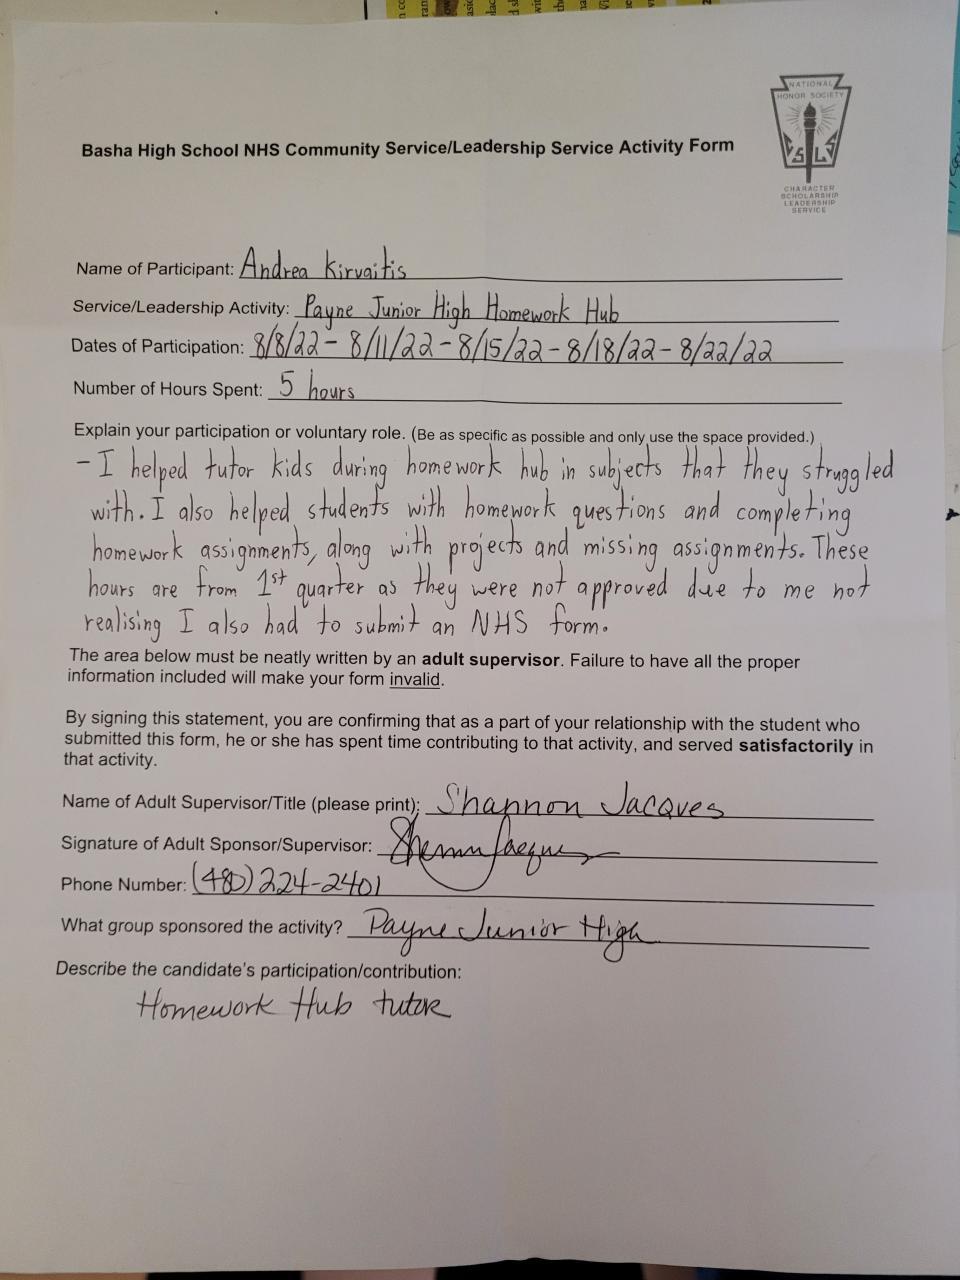 NATIONAL
HONOR SOCIETY
C S L S
CHARACTER
SCHOLARSHIP
LEADERSHIP
SERVICE
Basha High School NHS Community Service/Leadership Service Activity Form
Name of Participant: Andrea Kirvaitis
Service/Leadership Activity: Payne Junior High Homework Hub
Dates of Participation: 8/8/22 - 8/11/22 - 8/15/22 - 8/18/22 - 8/22/22
Number of Hours Spent: 5 hours
Explain your participation or voluntary role. (Be as specific as possible and only use the space provided.)
- I helped tutor kids during homework hub in subjects that they struggled
with. I also helped students with homework questions and completing
homework assignments, along with projects and missing assignments. These
hours are from 1st quarter as they were not approved due to me not
realising I also had to submit an NHS form.
The area below must be neatly written by an adult supervisor. Failure to have all the proper
information included will make your form invalid.
By signing this statement, you are confirming that as a part of your relationship with the student who
submitted this form, he or she has spent time contributing to that activity, and served satisfactorily in
that activity.
Name of Adult Supervisor/Title (please print): Shannon Jacques
Signature of Adult Sponsor/Supervisor: Shannon Jacques
Phone Number: (480) 224-2401
What group sponsored the activity? Payne Junior High
Describe the candidate's participation/contribution:
Homework Hub tutor